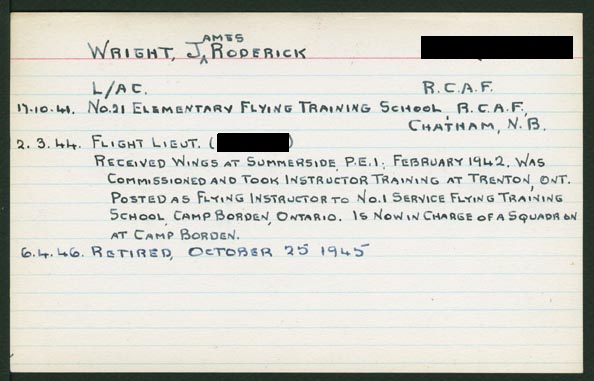 WRIGHT, JAMES RODERICK
L/AC. R.C.A.F.
17.10.41. NO.21 ELEMENTARY FLYING TRAINING SCHOOL, R.C.A.F.,
CHATHAM, N.B.
2.3.44. FLIGHT LIEUT. ( )
RECEIVED WINGS AT SUMMERSIDE, P.E.I., FEBRUARY 1942, WAS
COMMISSIONED AND TOOK INSTRUCTOR TRAINING AT TRENTON, ONT.
POSTED AS FLYING INSTRUCTOR TO NO.1 SERVICE FLYING TRAINING
SCHOOL, CAMP BORDEN, ONTARIO. IS NOW IN CHARGE OF A SQUADRON
AT CAMP BORDEN.
6.4.46. RETIRED, OCTOBER 25 1945